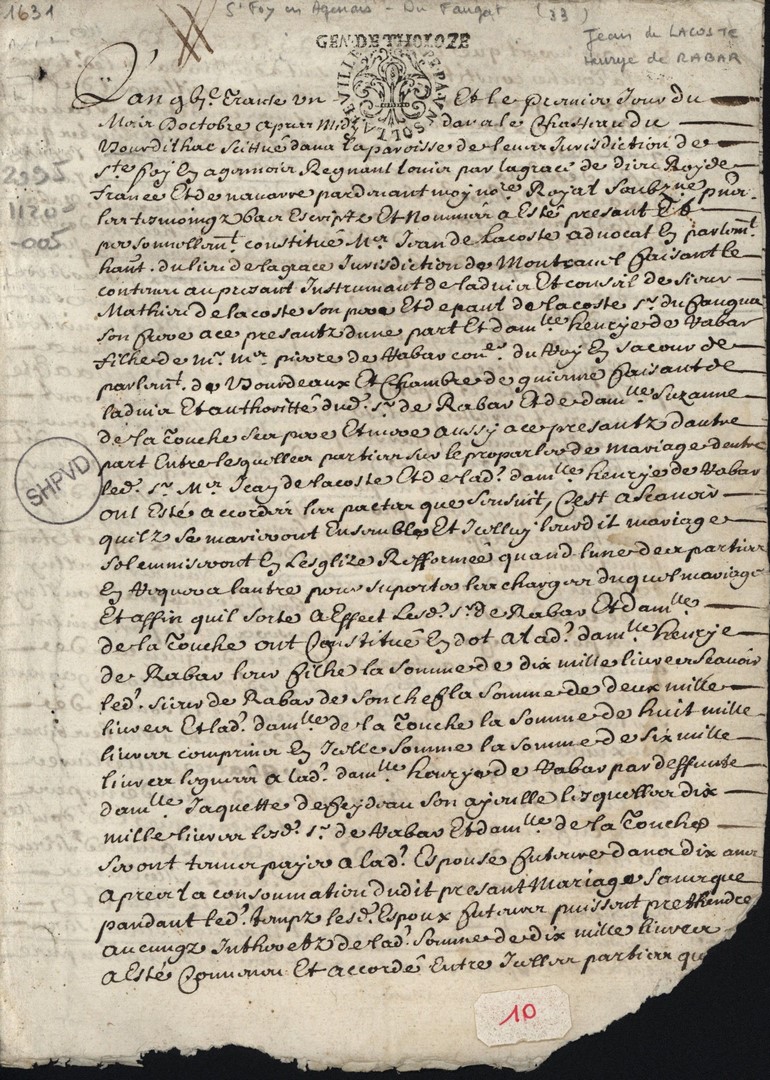 1631
Ste Foy en Agenais - Du Faugat (33)
Jean de LACOSTE
Henrye de RABAR
GEN. DE THOLOZE
2e95
11203
-005
SHPVD
L'an mil six cens Trante un Et le premier Jour du
Mois D'octobre apres midy dans le Chasteau du
Bourdilhac scittué dans la paroisse de Jurisdiction de
ste foy En agenois Regnant louis par la grace de dieu Roy de
france Et de navarre pardevant moy nore Royal soubzne pns
les tesmoingz bas Escriptz Et Nommés a Esté presant
personnellemt. constitué Mer. Jean de Lacoste advocat En parlemt.
habt. du lieu de la grace Jurisdiction de Montravel faisant le
contenu au presant Instrumant de l'advis Et conseil de sieur
Mathieu de lacoste son pere Et de paul de lacoste sr. du faugua
son frere a ce presantz d'une part Et damlle henrye de Rabar
filhe de mr. mr. pierre de Rabar coner. du Roy En sa cour de
parlemt. de Bourdeaux Et Chambre de guienne faisant de
l'advis Et authoritté dud. sr. de Rabar Et de damlle Suzanne
de la Touche ses pere Et mere aussy a ce presantz d'autre
part Entre lesquelles partiees sur le propos de mariage d'entre
led. sr. Mer Jean de lacoste Et de lad. damlle henrye de Rabar
ont Esté accordés les pactes que s'ensuit, C'est a scavoir
quilz se marieront Ensemble Et Icelluy leurdit mariage
solemniseront En L'esglize Refformée quand l'une des parties
En Requera l'autre pour suporter les charges duquel mariage
Et affin quil sorte a Effect Lesd. sr. de Rabar Et damlle
de la Touche ont Constitué En dot a lad. damlle henrye
de Rabar leur filhe la somme de dix mille livres scavoir
led. sieur de Rabar de son chef la somme de deux mille
livres Et lad. damlle de la Touche la somme de huit mille
livres comprinse En Icelle somme la somme de six mille
livres leguée a lad. damlle henrye de Rabar par deffunte
damlle Jaquette de feydeau son ayeulle lesquelles dix
mille livres lesd. sr. de Rabar Et damlle de la Touche
seront tenus payer a lad. Espouse future dans dix ans
apres la consommation dudit presant Mariage sans que
pandant led. temps lesd. Espoux futeurs puissent prethendre
aucungz Inthoretz de lad. somme de dix mille livres
a Esté Convenu Et accordé Entre Icelles parties que
10